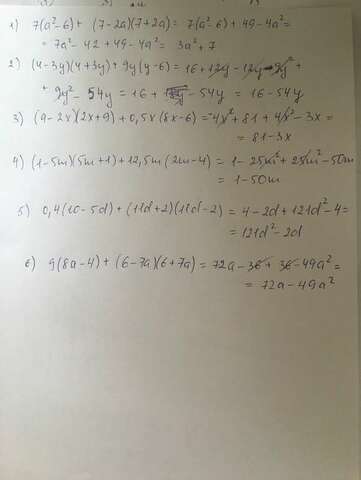 1) 7(a²-6) + (7-2a)(7+2a) = 7(a²-6) + 49 - 4a² =
= 7a² - 42 + 49 - 4a² = 3a² + 7
2) (4-3y)(4+3y) + 9y(y-6) = 16 + 12y - 12y - 9y² +
+ 9y² - 54y = 16 + - 54y = 16 - 54y
3) (9-2x)(2x+9) + 0,5x(8x-6) = -4x² + 81 + 4x² - 3x =
= 81 - 3x
4) (1-5m)(5m+1) + 12,5m(2m-4) = 1 - 25m² + 25m² - 50m
= 1 - 50m
5) 0,4(10-5d) + (11d+2)(11d-2) = 4 - 2d + 121d² - 4 =
= 121d² - 2d
6) 9(8a-4) + (6-7a)(6+7a) = 72a - 36 + 36 - 49a² =
= 72a - 49a²